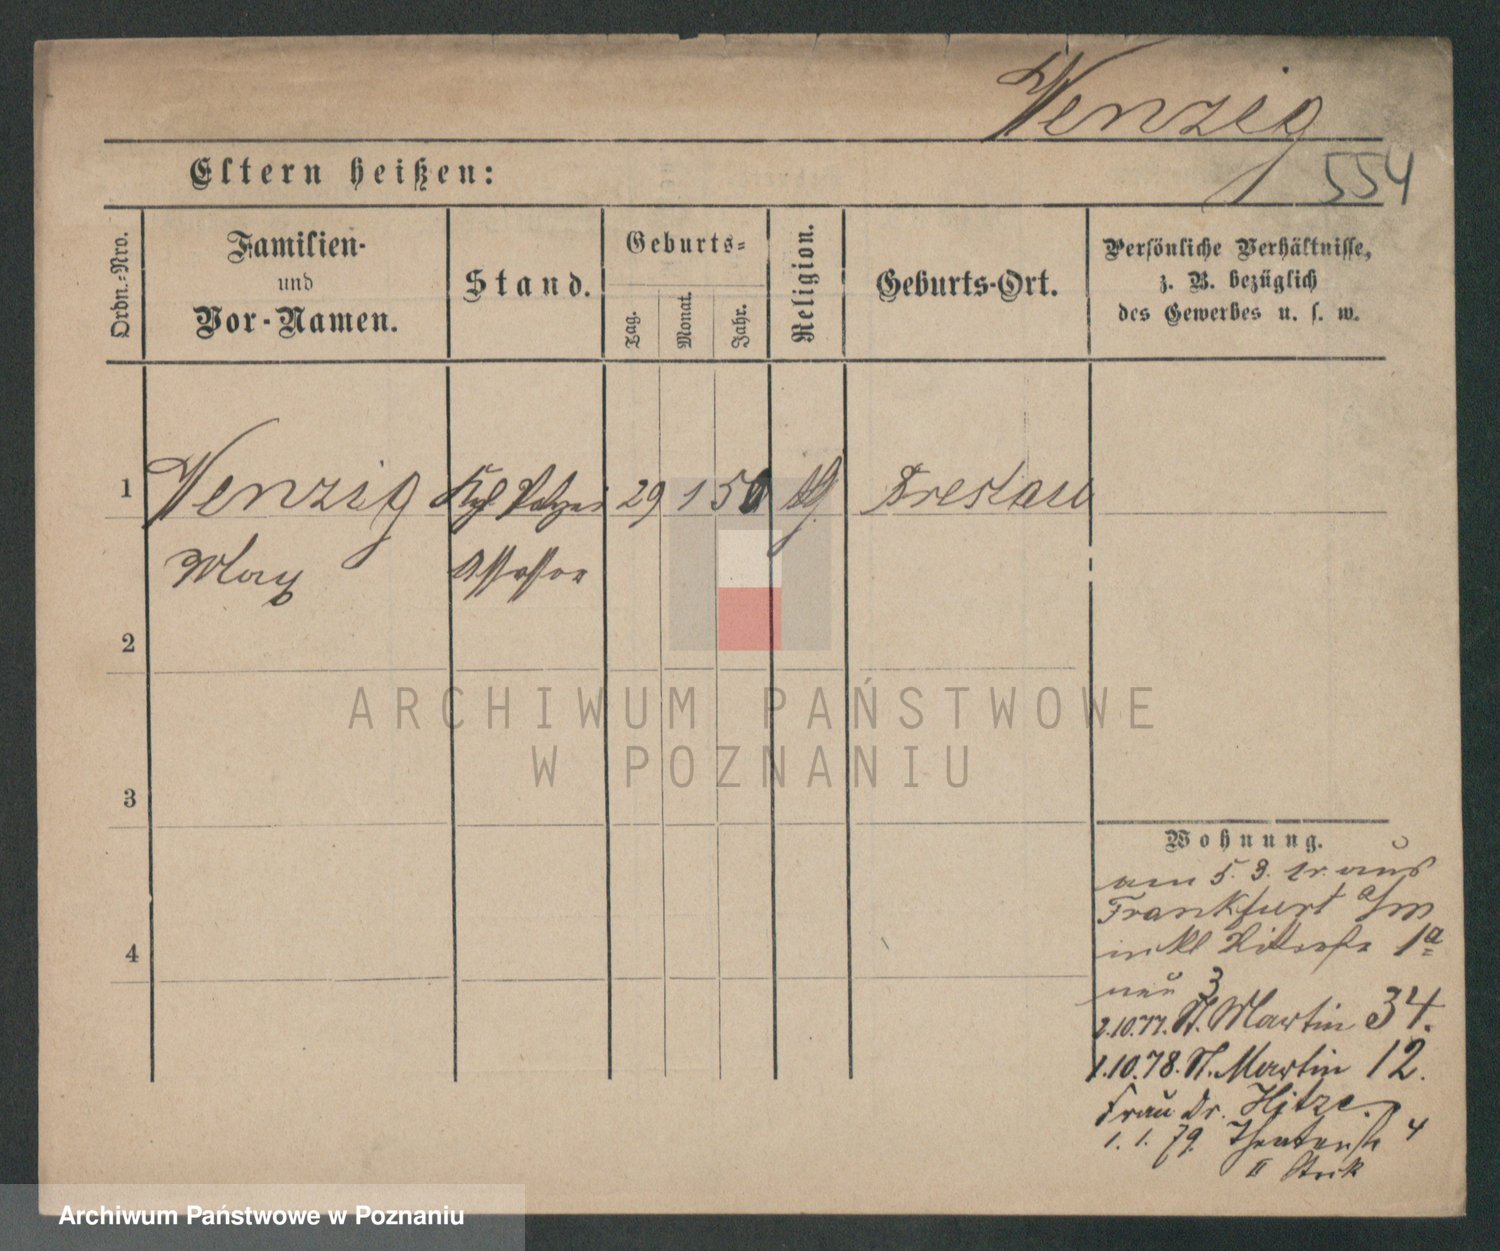 Wenzig
554
Eltern heißen:
Ordn.-Nro.
Familien-
und
Vor-Namen.
Stand.
Geburts-
Tag.
Monat.
Jahr.
Religion.
Geburts-Ort.
Persönliche Verhältnisse,
z. B. bezüglich
des Gewerbes u. s. w.
1 Wenzig Kgl 29 1 50 Breslau
Max Assessor
2
ARCHIWUM PAŃSTWOWE
W POZNANIU
3
Wohnung.
am 5. 3. cr. aus
Frankfurt a/m
1a
neu 3
4
2.10.77. St. Martin 34.
1.10.78. St. Martin 12.
Frau Dr. Hitze.
1. 1. 79. Theaterstr 4
II Stck
Archiwum Państwowe w Poznaniu